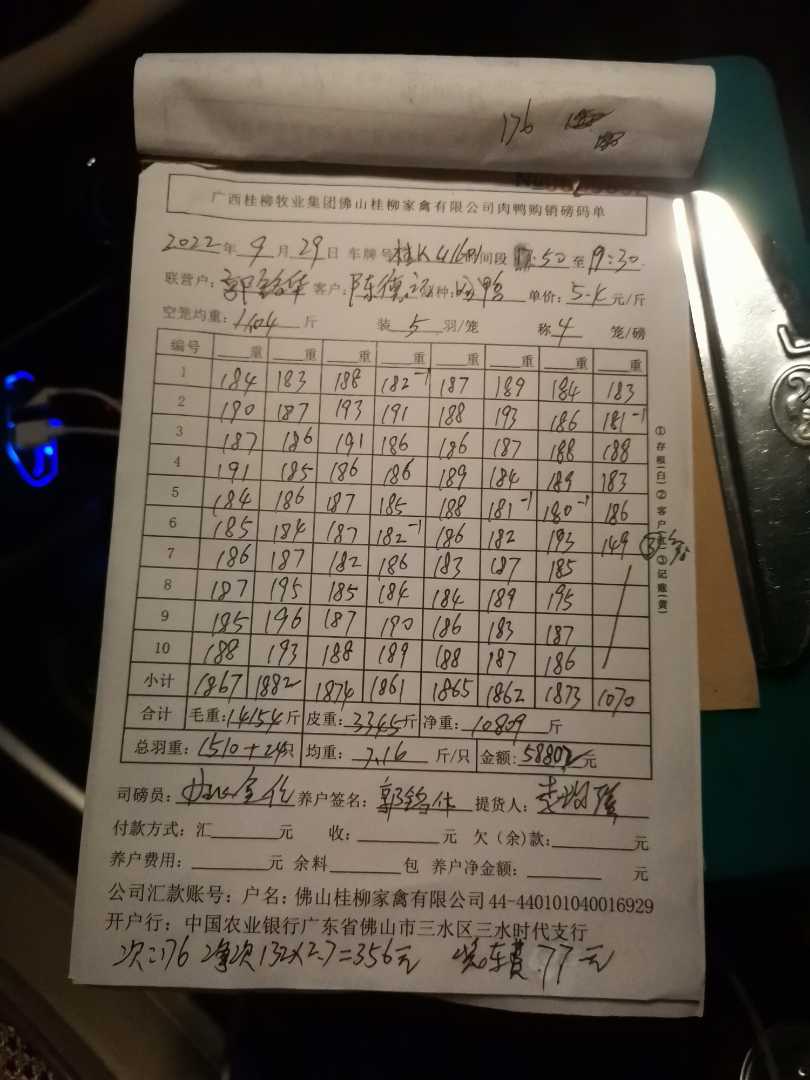 176
广西桂柳牧业集团佛山桂柳家禽有限公司肉鸭购销磅码单
2022年9月29日 车牌号:桂K 时间段 :50至19:30
联营户: 客户:陈德 品种: 鸭 单价: 元/斤
空笼均重: 斤 装5羽/笼 称4笼/磅
编号 重 重 重 重 重 重 重 重
1 184 183 188 182-1 187 189 184 183
2 190 187 193 191 188 193 186 181-1
3 187 186 191 186 186 187 188 188
4 191 185 186 186 189 184 189 183
5 184 186 187 185 188 181-1 180-1 186
6 185 184 187 182-1 186 182 193 149 ③笼
7 186 187 182 186 183 187 185
8 187 195 185 184 184 189 195
9 185 196 187 190 186 183 187
10 188 193 188 189 188 187 186
小计 1867 1882 1874 1861 1865 1862 1873 1070
合计 毛重:14154斤 皮重:3345斤 净重:10809斤
总羽重:1510+24只 均重:7.16斤/只 金额:58802元
①存根(白)②客户(红)③记账(黄)
司磅员: 养户签名:郭 提货人:李
付款方式:汇 元 收: 元 欠(余)款: 元
养户费用: 元 余料 包 养户净金额: 元
公司汇款账号:户名:佛山桂柳家禽有限公司44-440101040016929
开户行:中国农业银行广东省佛山市三水区三水时代支行
次:176 132×2.7=356元 车费:77元